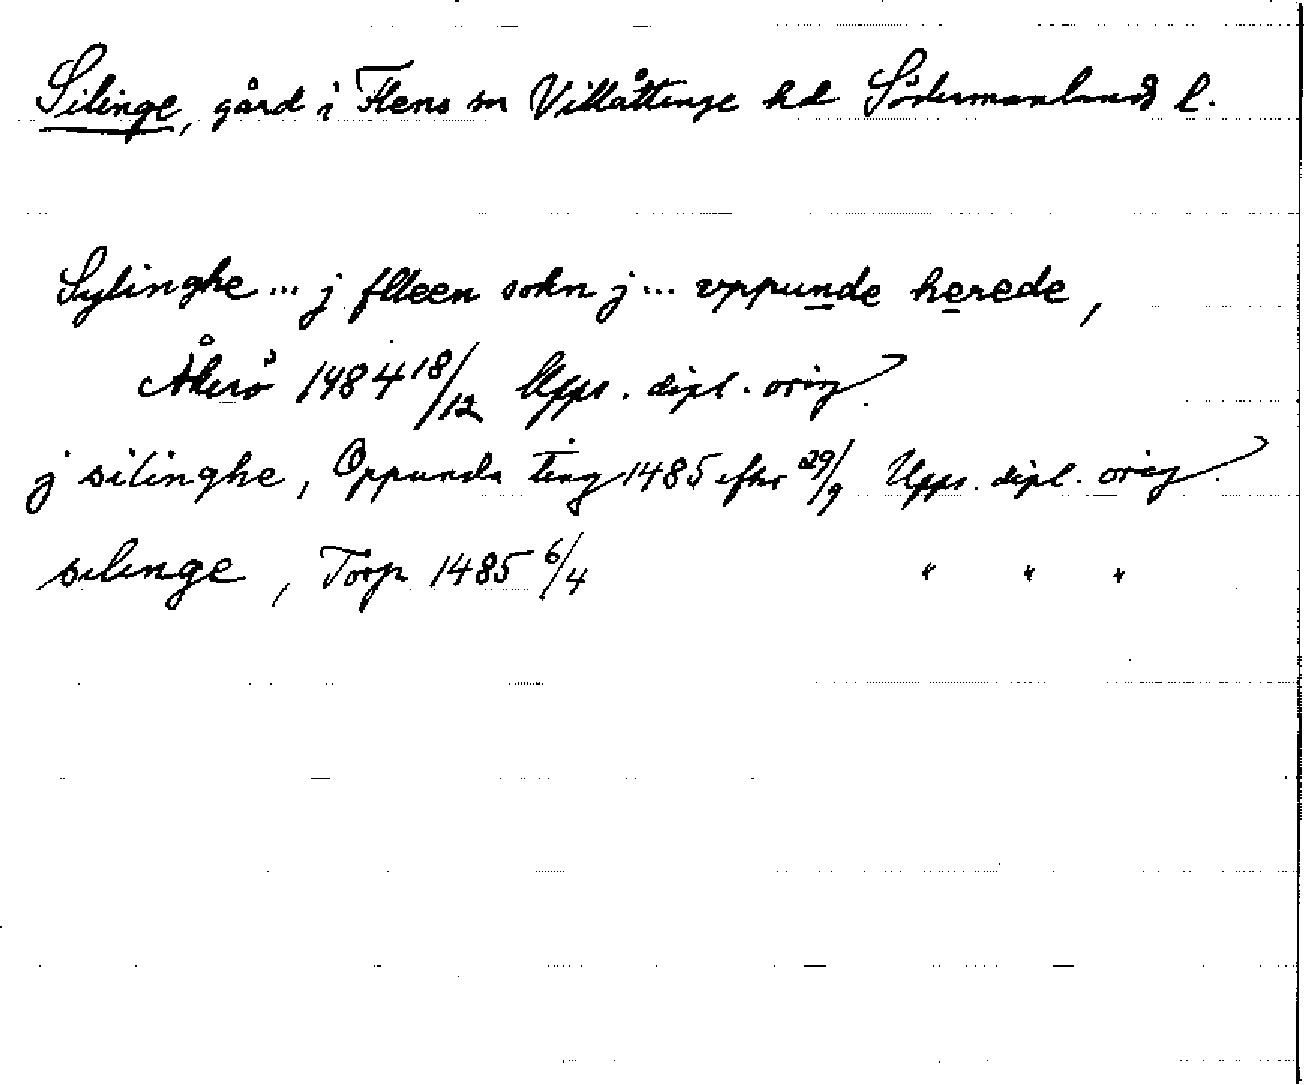 Silinge, gård i Flens sn Villåttinge hd Södermanlands l.
Sylinghe ... j flleen sokn j ... vppunde herede,
Åkerö 1484 18/12 Upps. dipl. orig.
j silinghe, Oppunda ting 1485 efter 29/9 Upps. dipl. orig.
silinge, Torp 1485 6/4 " " "